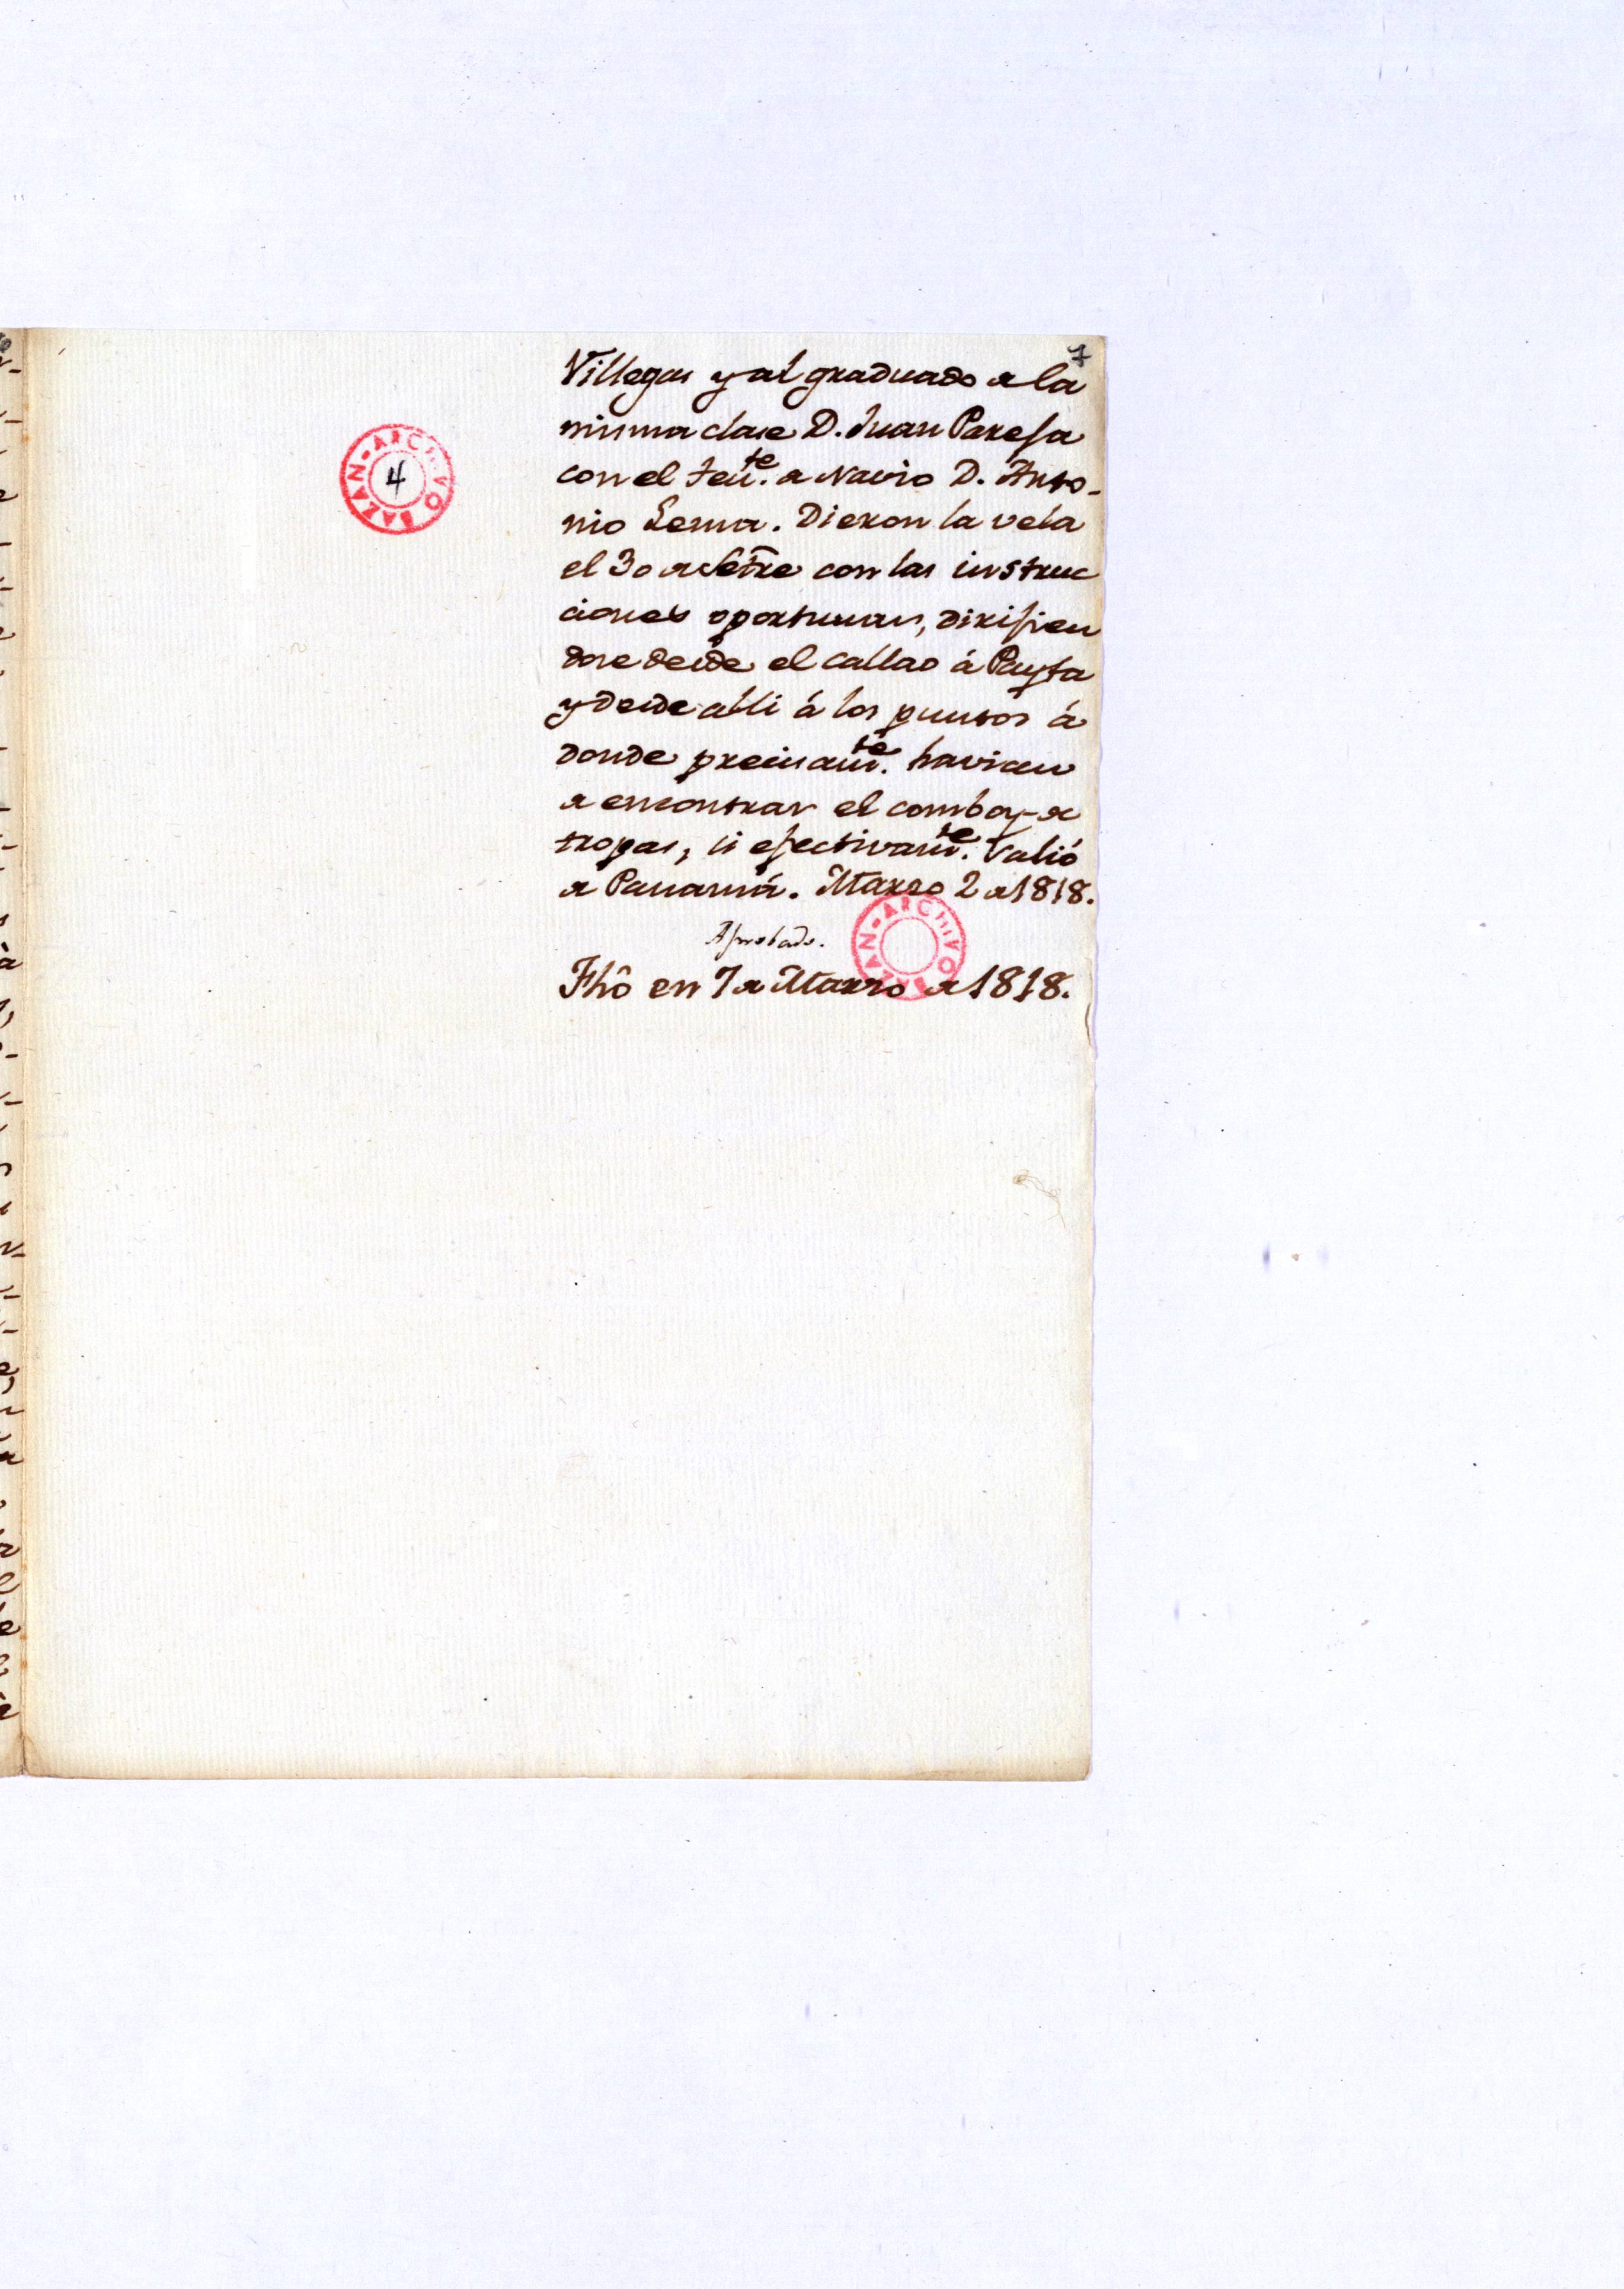 7
Villegas y al graduado de la
misma clase D. Juan Pareja
con el ten.te de Navio D. Anto-
nio Lerma. Dieron la vela
el 30 de Setre con las instruc
ciones oportunas, dirifien
dose desde el Callao á Payta
y desde alli á los puntos á
donde precisam.te havian
de encontrar el comboy de
tropas, si efectivam.te salió
de Panamá. Marzo 2 de 1818.
Aprobado.
Fhô en 7 de Marzo de 1818.
ARCHIVO BAZAN
4
ARCHIVO BAZAN